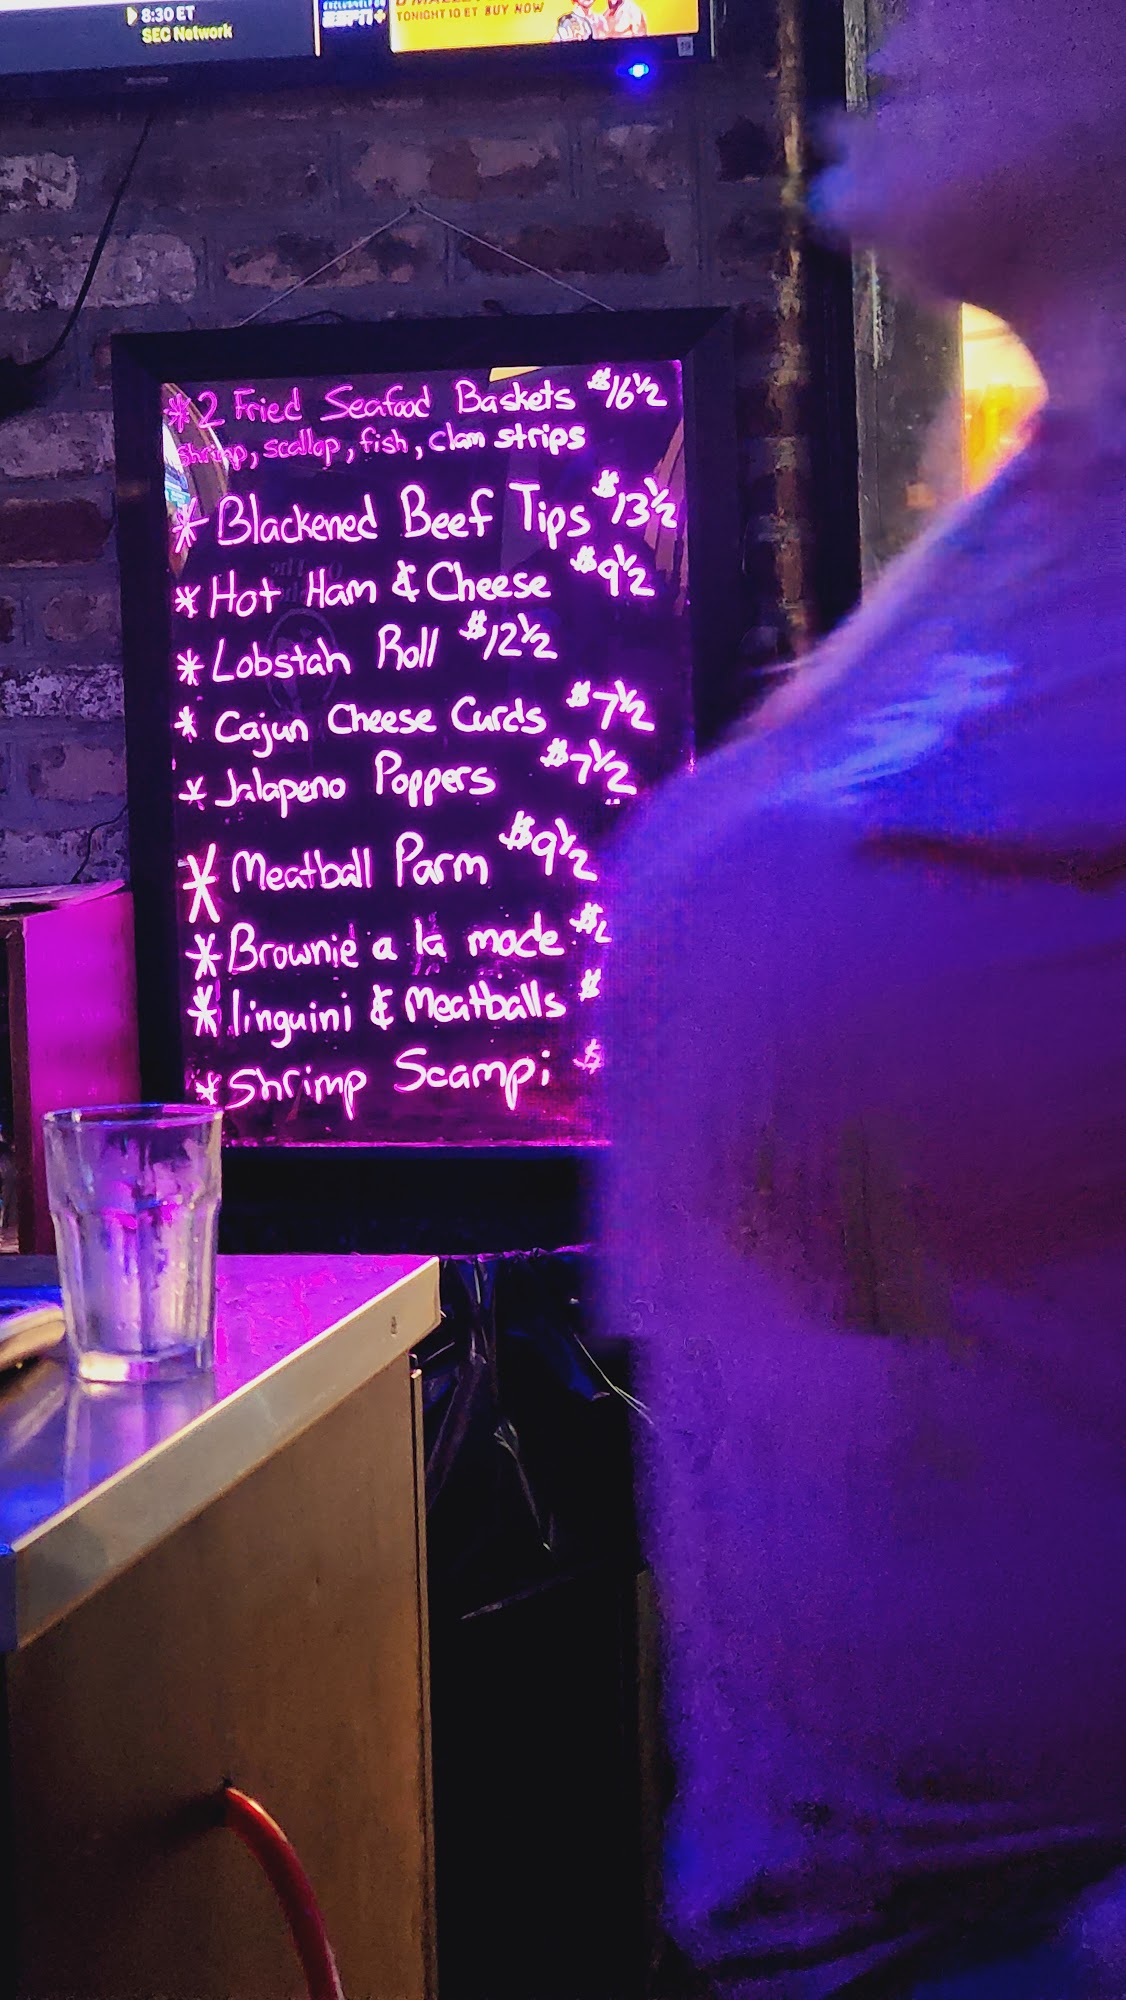 8:30 ET
SEC Network
ESPN+
TONIGHT 10 ET BUY NOW
* 2 Fried Seafood Baskets $16½
shrimp, scallop, fish, clam strips
* Blackened Beef Tips $13½
* Hot Ham & Cheese $9½
* Lobstah Roll $12½
* Cajun Cheese Curds $7½
* Jalapeno Poppers $7½
* Meatball Parm $9½
* Brownie a la mode $
* linguini & Meatballs $
* Shrimp Scampi $